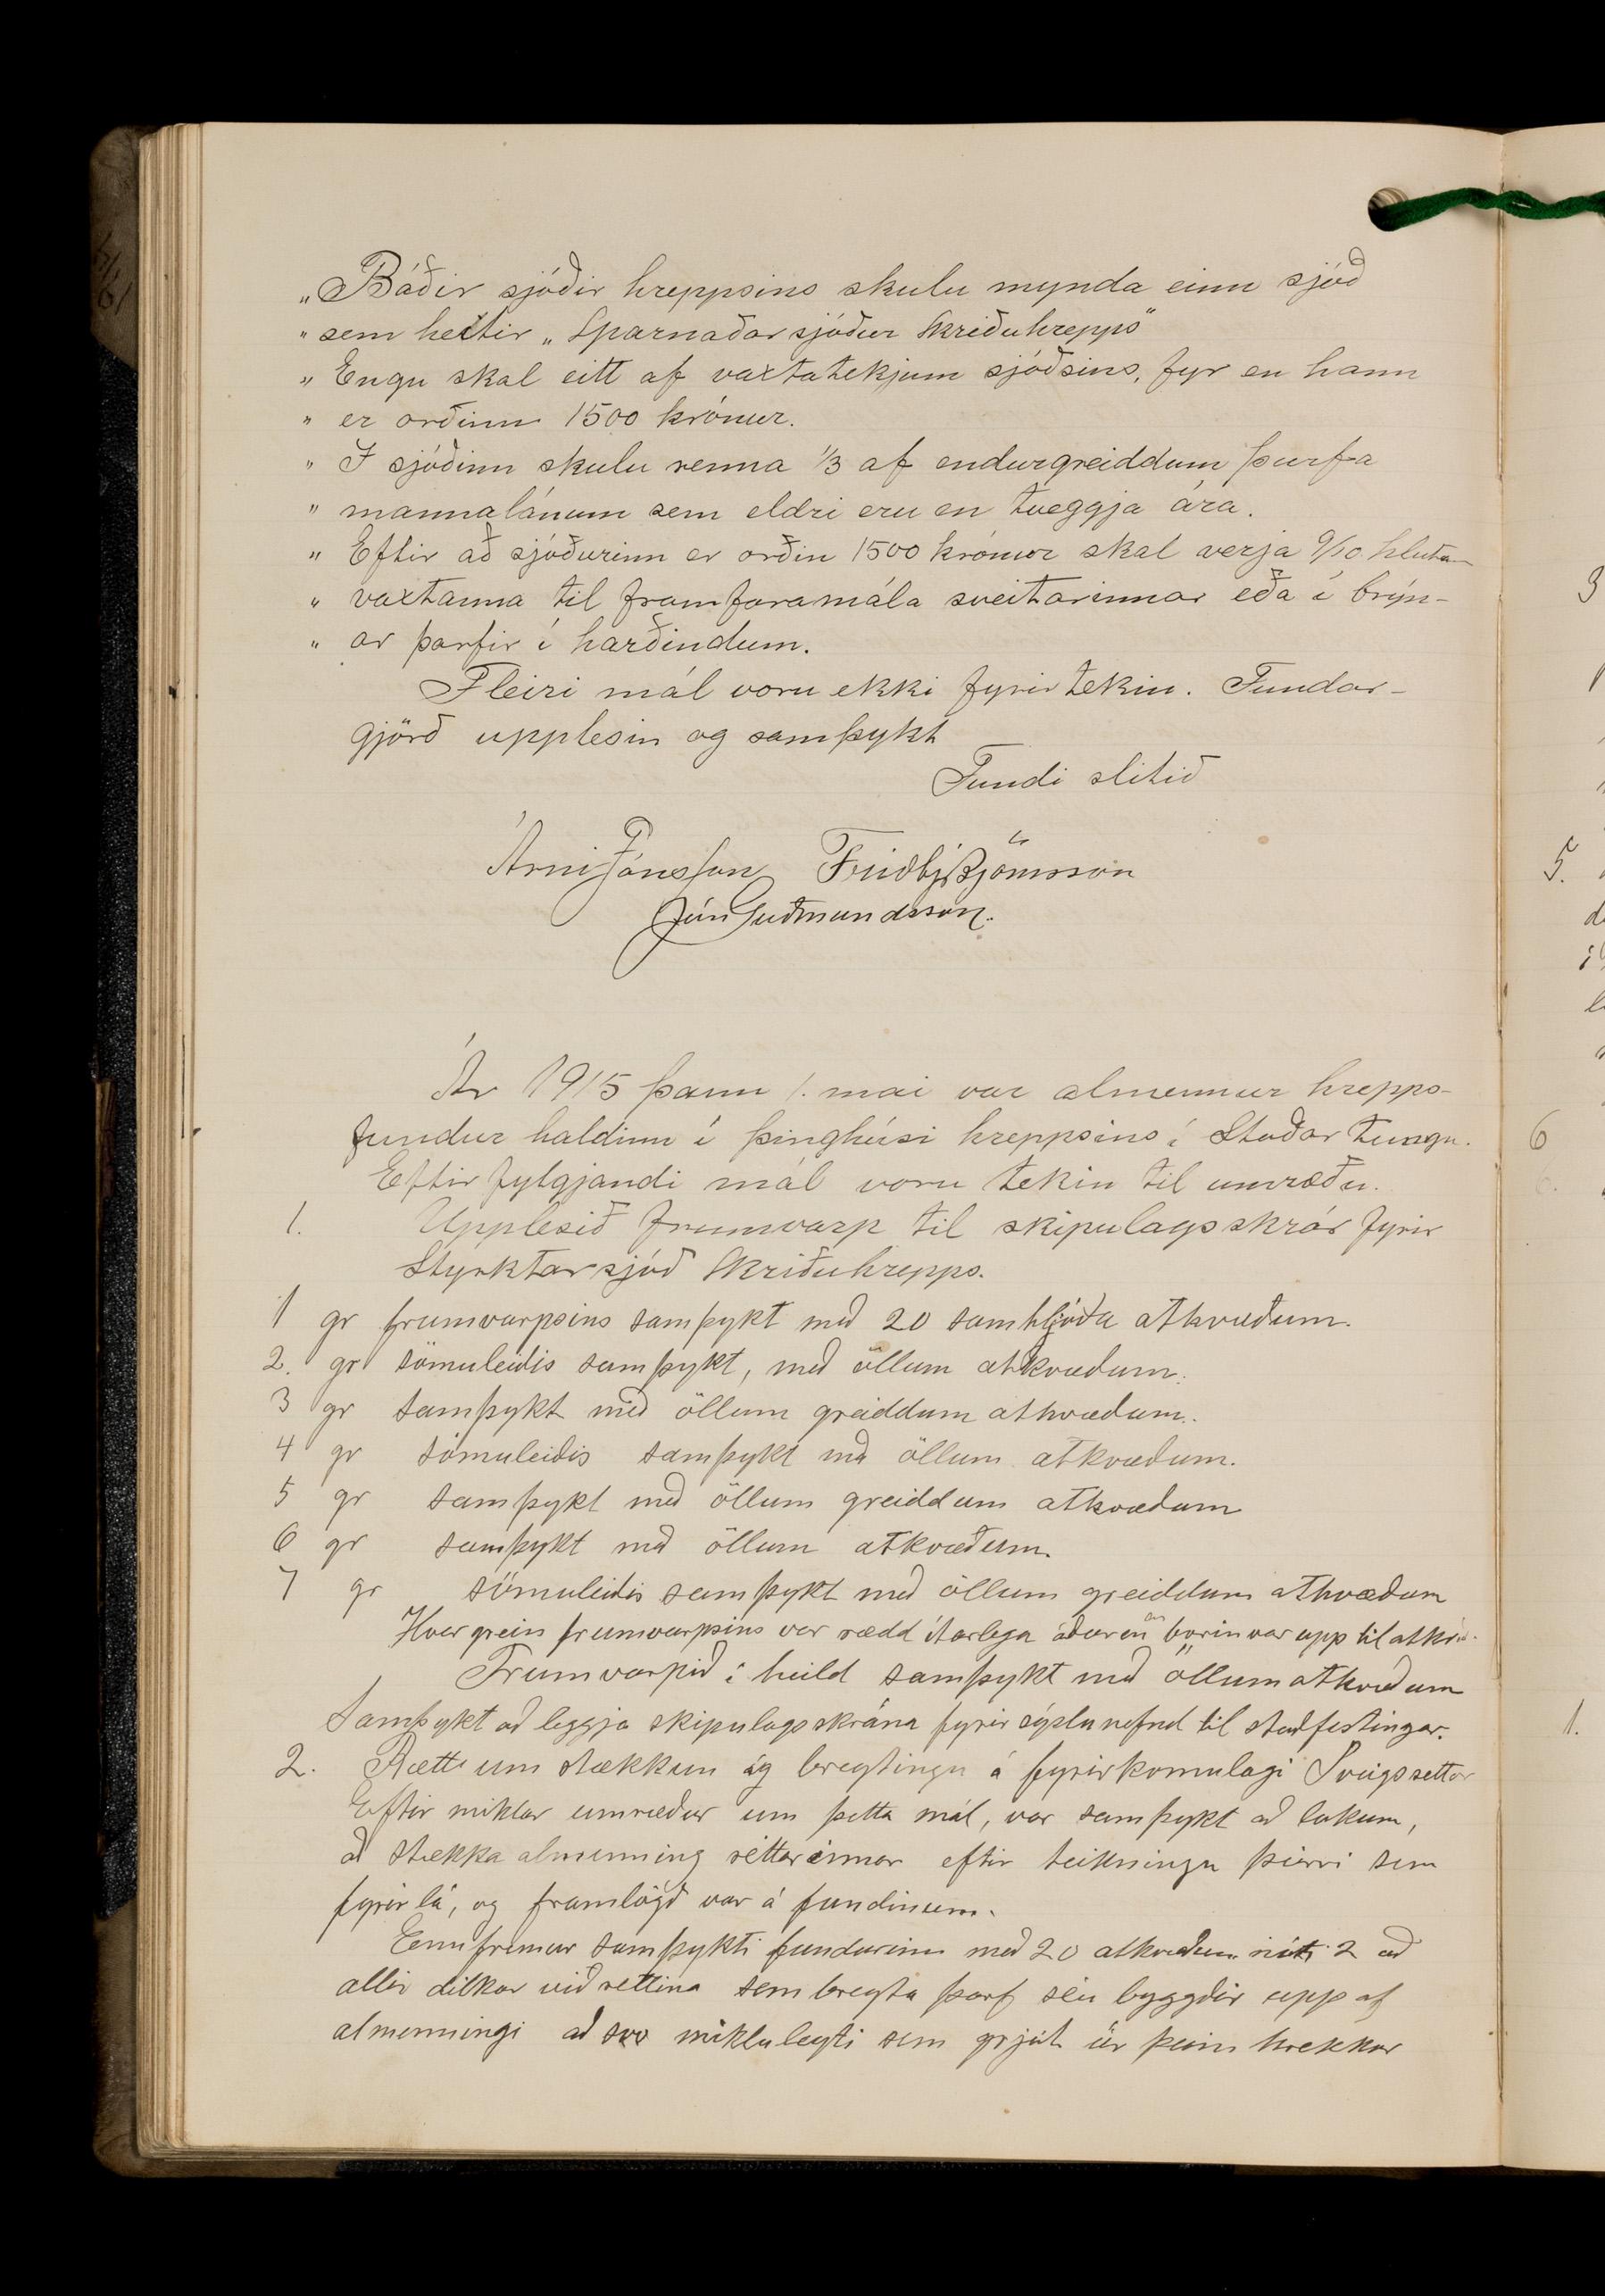 „Báðir sjóðir hreppsins skulu mynda einn sjóð
„ sem heitir „Sparnaðarsjóður Skriðuhrepps"
„ Engu skal eitt af vaxtatekjum sjóðsins, fyr en hann
„ er orðinn 1500 krónur.
„ I sjóðinn skulu renna 1/3 af endurgreiddum þurfa
„ mannalánum sem eldri eru en tveggja ára.
„ Eftir að sjóðurinn er orðin 1500 krónur skal verja 9/10 hluta
„ vaxtanna til framfaramála sveitarinnar eða í brýn-
„ ar þarfir í harðindum.
Fleiri mál voru ekki fyrirtekin. Fundar-
gjörð upplesin og samþykt
Fundi slitið
Árni Jónsson Friðbj. Björnsson
Jón Guðmundsson.
Ár 1915 þann 1. mai var almennur hrepps-
fundur haldinn í þinghúsi hreppsins í Staðartungu.
Eftirfylgjandi mál voru tekin til umræðu.
1. Upplesið frumvarp til skipulagsskrár fyrir
Styrktarsjóð Skriðuhrepps.
1 gr frumvarpsins samþykt með 20 samhljóða atkvæðum.
2. gr sömuleiðis samþykt, með öllum atkvæðum.
3 gr samþykt með öllum greiddum atkvæðum.
4 gr sömuleiðis samþykt með öllum atkvæðum.
5 gr samþykt með öllum greiddum atkvæðum
6 gr samþykt með öllum atkvæðum.
7 gr sömuleiðis samþykt með öllum greiddum atkvæðum
Hver grein frumvarpsins var rædd ítarlega áður en borin var upp til atkv.
Frumvarpið í heild samþykt með öllum atkvæðum
Samþykt að leggja skipulagsskrána fyrir sýslunefnd til staðfestingar.
2. Rætt um stækkun og breytingu á fyrirkomulagi
Eftir miklar umræður um þetta mál, var samþykt að lokum,
að stækka almenning réttarinnar eftir teikningu þeirri sem
fyrir lá, og framlögð var á fundinum.
Ennfremur samþykti fundurinn með 20 atkvæðum móti 2 að
allir dilkar við réttina sem breyta þarf séu byggðir upp af
almenningi að svo miklu leyti sem grjót úr þeim hrekkur